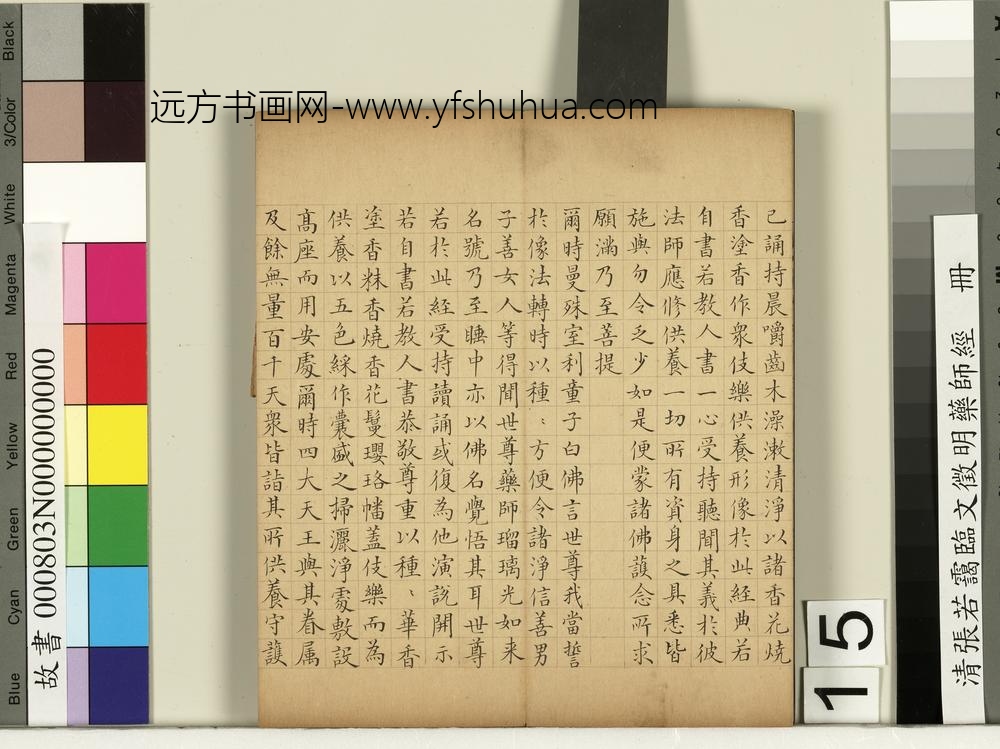 远方书画网-www.yfshuhua.com
己誦持晨嚼齒木澡漱清淨以諸香花燒
香塗香作眾伎樂供養形像於此經典若
自書若教人書一心受持聽聞其義於彼
法師應修供養一切所有資身之具悉皆
施與勿令乏少如是便蒙諸佛護念所求
願滿乃至菩提
爾時曼殊室利童子白佛言世尊我當誓
於像法轉時以種〻方便令諸淨信善男
子善女人等得聞世尊藥師瑠璃光如来
名號乃至睡中亦以佛名覺悟其耳世尊
若於此經受持讀誦或復為他演說開示
若自書若教人書恭敬尊重以種〻華香
塗香粖香燒香花鬘瓔珞幡蓋伎樂而為
供養以五色綵作囊盛之掃灑淨處敷設
髙座而用安處爾時四大天王與其眷属
及餘無量百千天眾皆詣其所供養守護
清張若靄臨文徵明藥師經 冊
15
故書 000803N000000000
Black
3/Color
White
Magenta
Red
Yellow
Green
Cyan
Blue